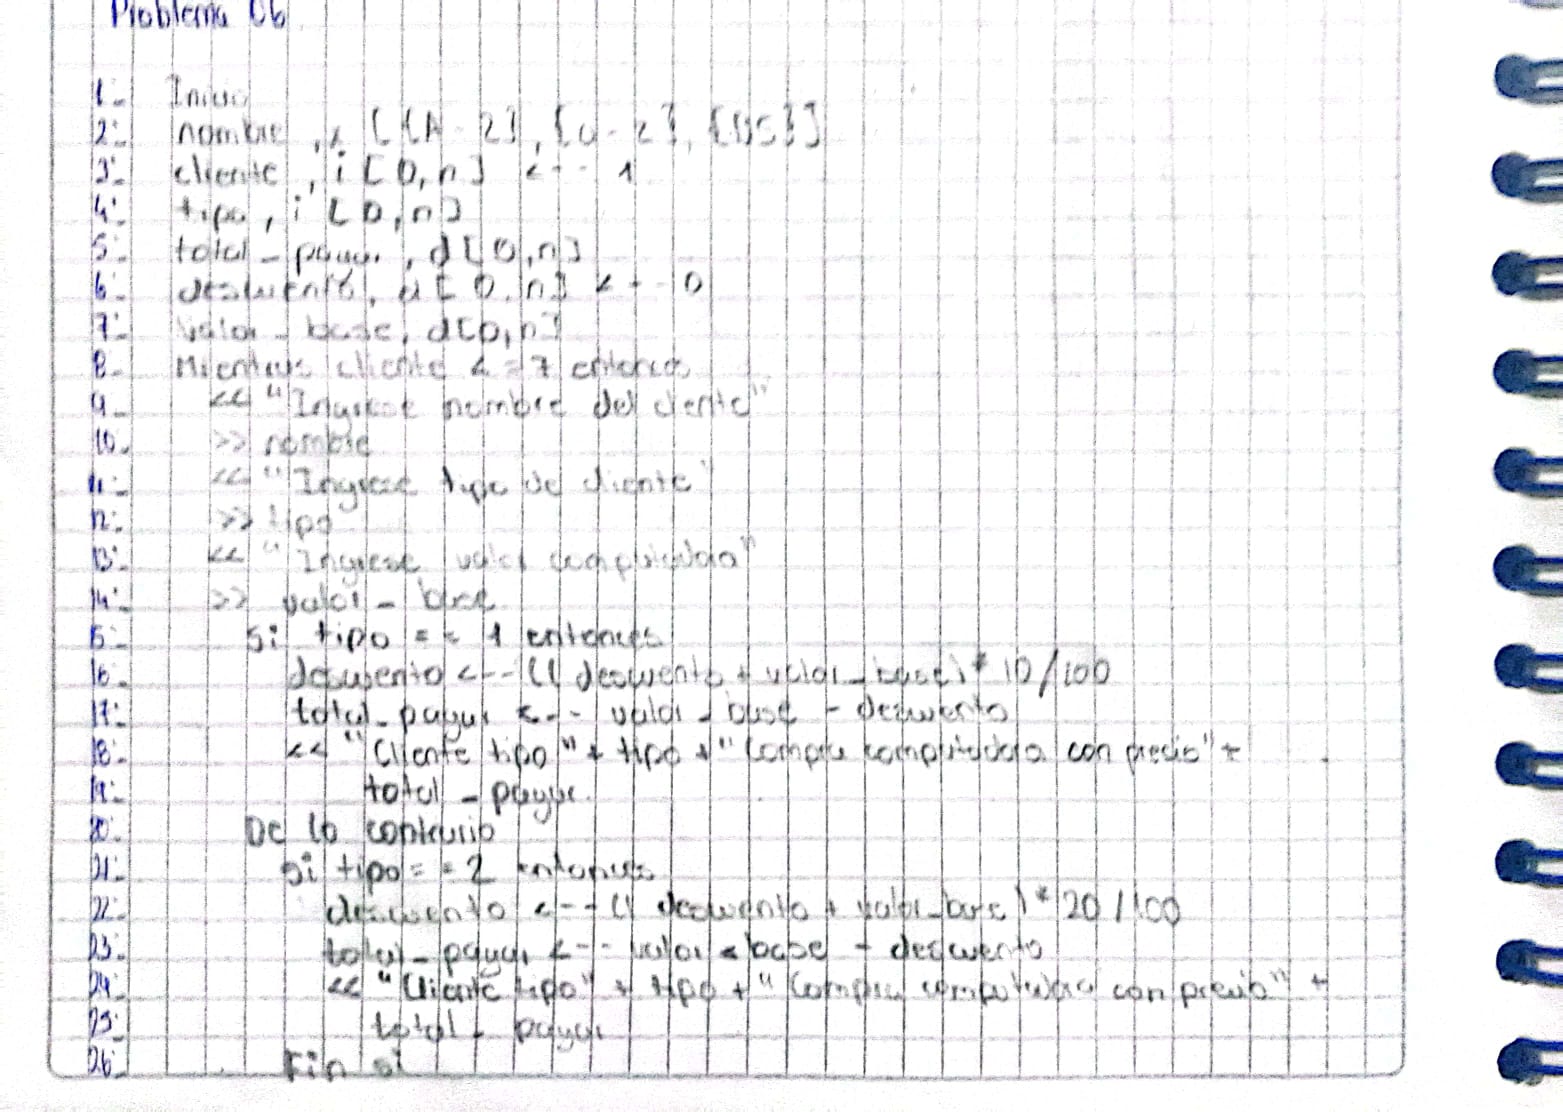 Problema 06
1.- Inicio
2.- nombre , x [{A-Z}, {a-z}, {DS}]
3.- cliente , i [0,n] <-- 1
4.- tipo, i [0,n]
5.- total_pagar, d[0,n]
6.- descuento, d[0,n] <-- 0
7.- Valor_base, d[0,n]
8.- Mientras cliente <=7 entonces
9.- << "Ingrese nombre del cliente"
10.- >> nombre
11.- << "Ingrese tipo de cliente"
12.- >> tipo
13.- << "Ingrese valor computadora"
14.- >> valor_base
15.- Si tipo == 1 entonces
16.- descuento <-- (( descuento + valor_base) * 10/100
17.- total_pagar <-- valor_base - descuento
18.- << "Cliente tipo" + tipo + "Compra computadora con precio" +
19.- total_pagar
20.- De lo contrario
21.- Si tipo == 2 entonces
22.- descuento <-- (( descuento + valor_base) * 20/100
23.- total_pagar <-- valor_base - descuento
24.- << "Cliente tipo" + tipo + "Compra computadora con precio" +
25.- total_pagar
26.- Fin si